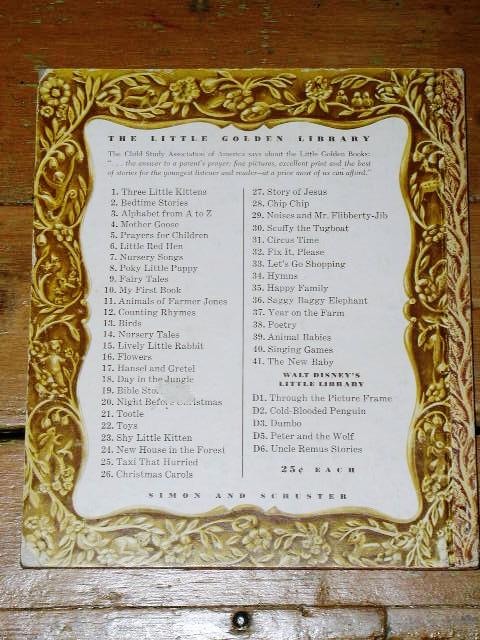 THE LITTLE GOLDEN LIBRARY
The Child Study Association of America says about the Little Golden Books:
". . . the answer to a parent's prayer; fine pictures, excellent print and the best
of stories for the youngest listener and reader—at a price most of us can afford."
1. Three Little Kittens
2. Bedtime Stories
3. Alphabet from A to Z
4. Mother Goose
5. Prayers for Children
6. Little Red Hen
7. Nursery Songs
8. Poky Little Puppy
9. Fairy Tales
10. My First Book
11. Animals of Farmer Jones
12. Counting Rhymes
13. Birds
14. Nursery Tales
15. Lively Little Rabbit
16. Flowers
17. Hansel and Gretel
18. Day in the Jungle
19. Bible Sto
20. Night Before Christmas
21. Tootle
22. Toys
23. Shy Little Kitten
24. New House in the Forest
25. Taxi That Hurried
26. Christmas Carols
27. Story of Jesus
28. Chip Chip
29. Noises and Mr. Flibberty-Jib
30. Scuffy the Tugboat
31. Circus Time
32. Fix It, Please
33. Let's Go Shopping
34. Hymns
35. Happy Family
36. Saggy Baggy Elephant
37. Year on the Farm
38. Poetry
39. Animal Babies
40. Singing Games
41. The New Baby
WALT DISNEY'S
LITTLE LIBRARY
D1. Through the Picture Frame
D2. Cold-Blooded Penguin
D3. Dumbo
D5. Peter and the Wolf
D6. Uncle Remus Stories
25¢ EACH
SIMON AND SCHUSTER